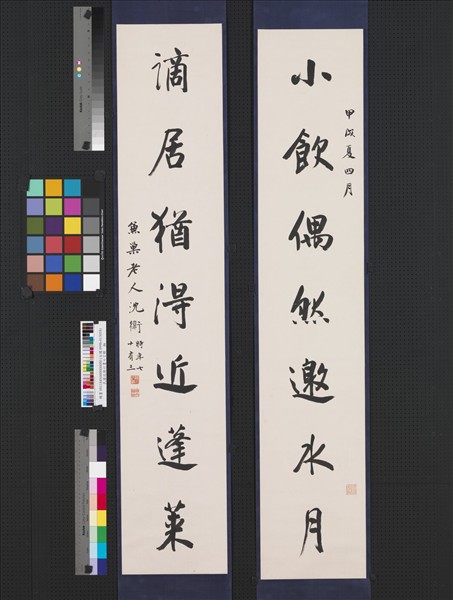 小飲偶然邀水月
甲戌夏四月
謫居猶得近蓬萊
魚巢老人沈衛時年七
十有三